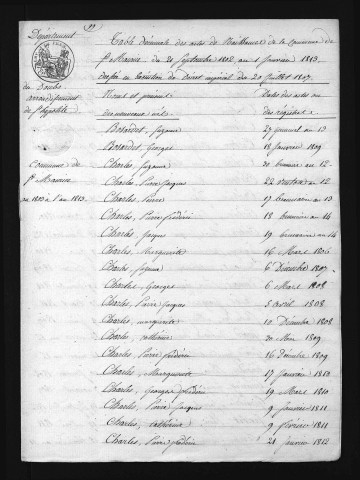 Département
du Doubs
arrondissement
de St hypolite
Commune de
St Maurice
an 1802 à l'an 1813.
Table décennale des actes de Naissances de la Commune de
St Maurice du 20 Septembre 1802 au 1 janvier 1813.
dressée en Exécution du Décret impérial du 20 juillet 1807.
Noms et prénoms Dates des actes ou
des nouveaux nés. des registres
Bourdet, Suzanne
Bourdet, Georges 18 janvier 1809
Charles, Suzanne 20 brumaire an 12
Charles, Pierre Jacques 22 ventose an 12
Charles, Pierre an 13
Charles, Pierre frédéric 18 brumaire an 14
Charles, Jacque 19 brumaire an 14
Charles, Marguerite 16 Mars 1806
Charles, Suzanne 6 Décembre 1807
Charles, Georges 6 Mars 1808
Charles, Pierre Jacques 5 avril 1808
Charles, marguerite 10 Décembre 1808
Charles, cathérine 20 Mars 1809
Charles, Pierre frédéric 16 Décembre 1809
Charles, Marguerite 17 janvier 1810
Charles, georges frédéric 19 Mars 1810
Charles, Pierre Jacques 9 janvier 1811
Charles, cathérine 9 février 1811
Charles, Pierre frédéric 21 janvier 1812